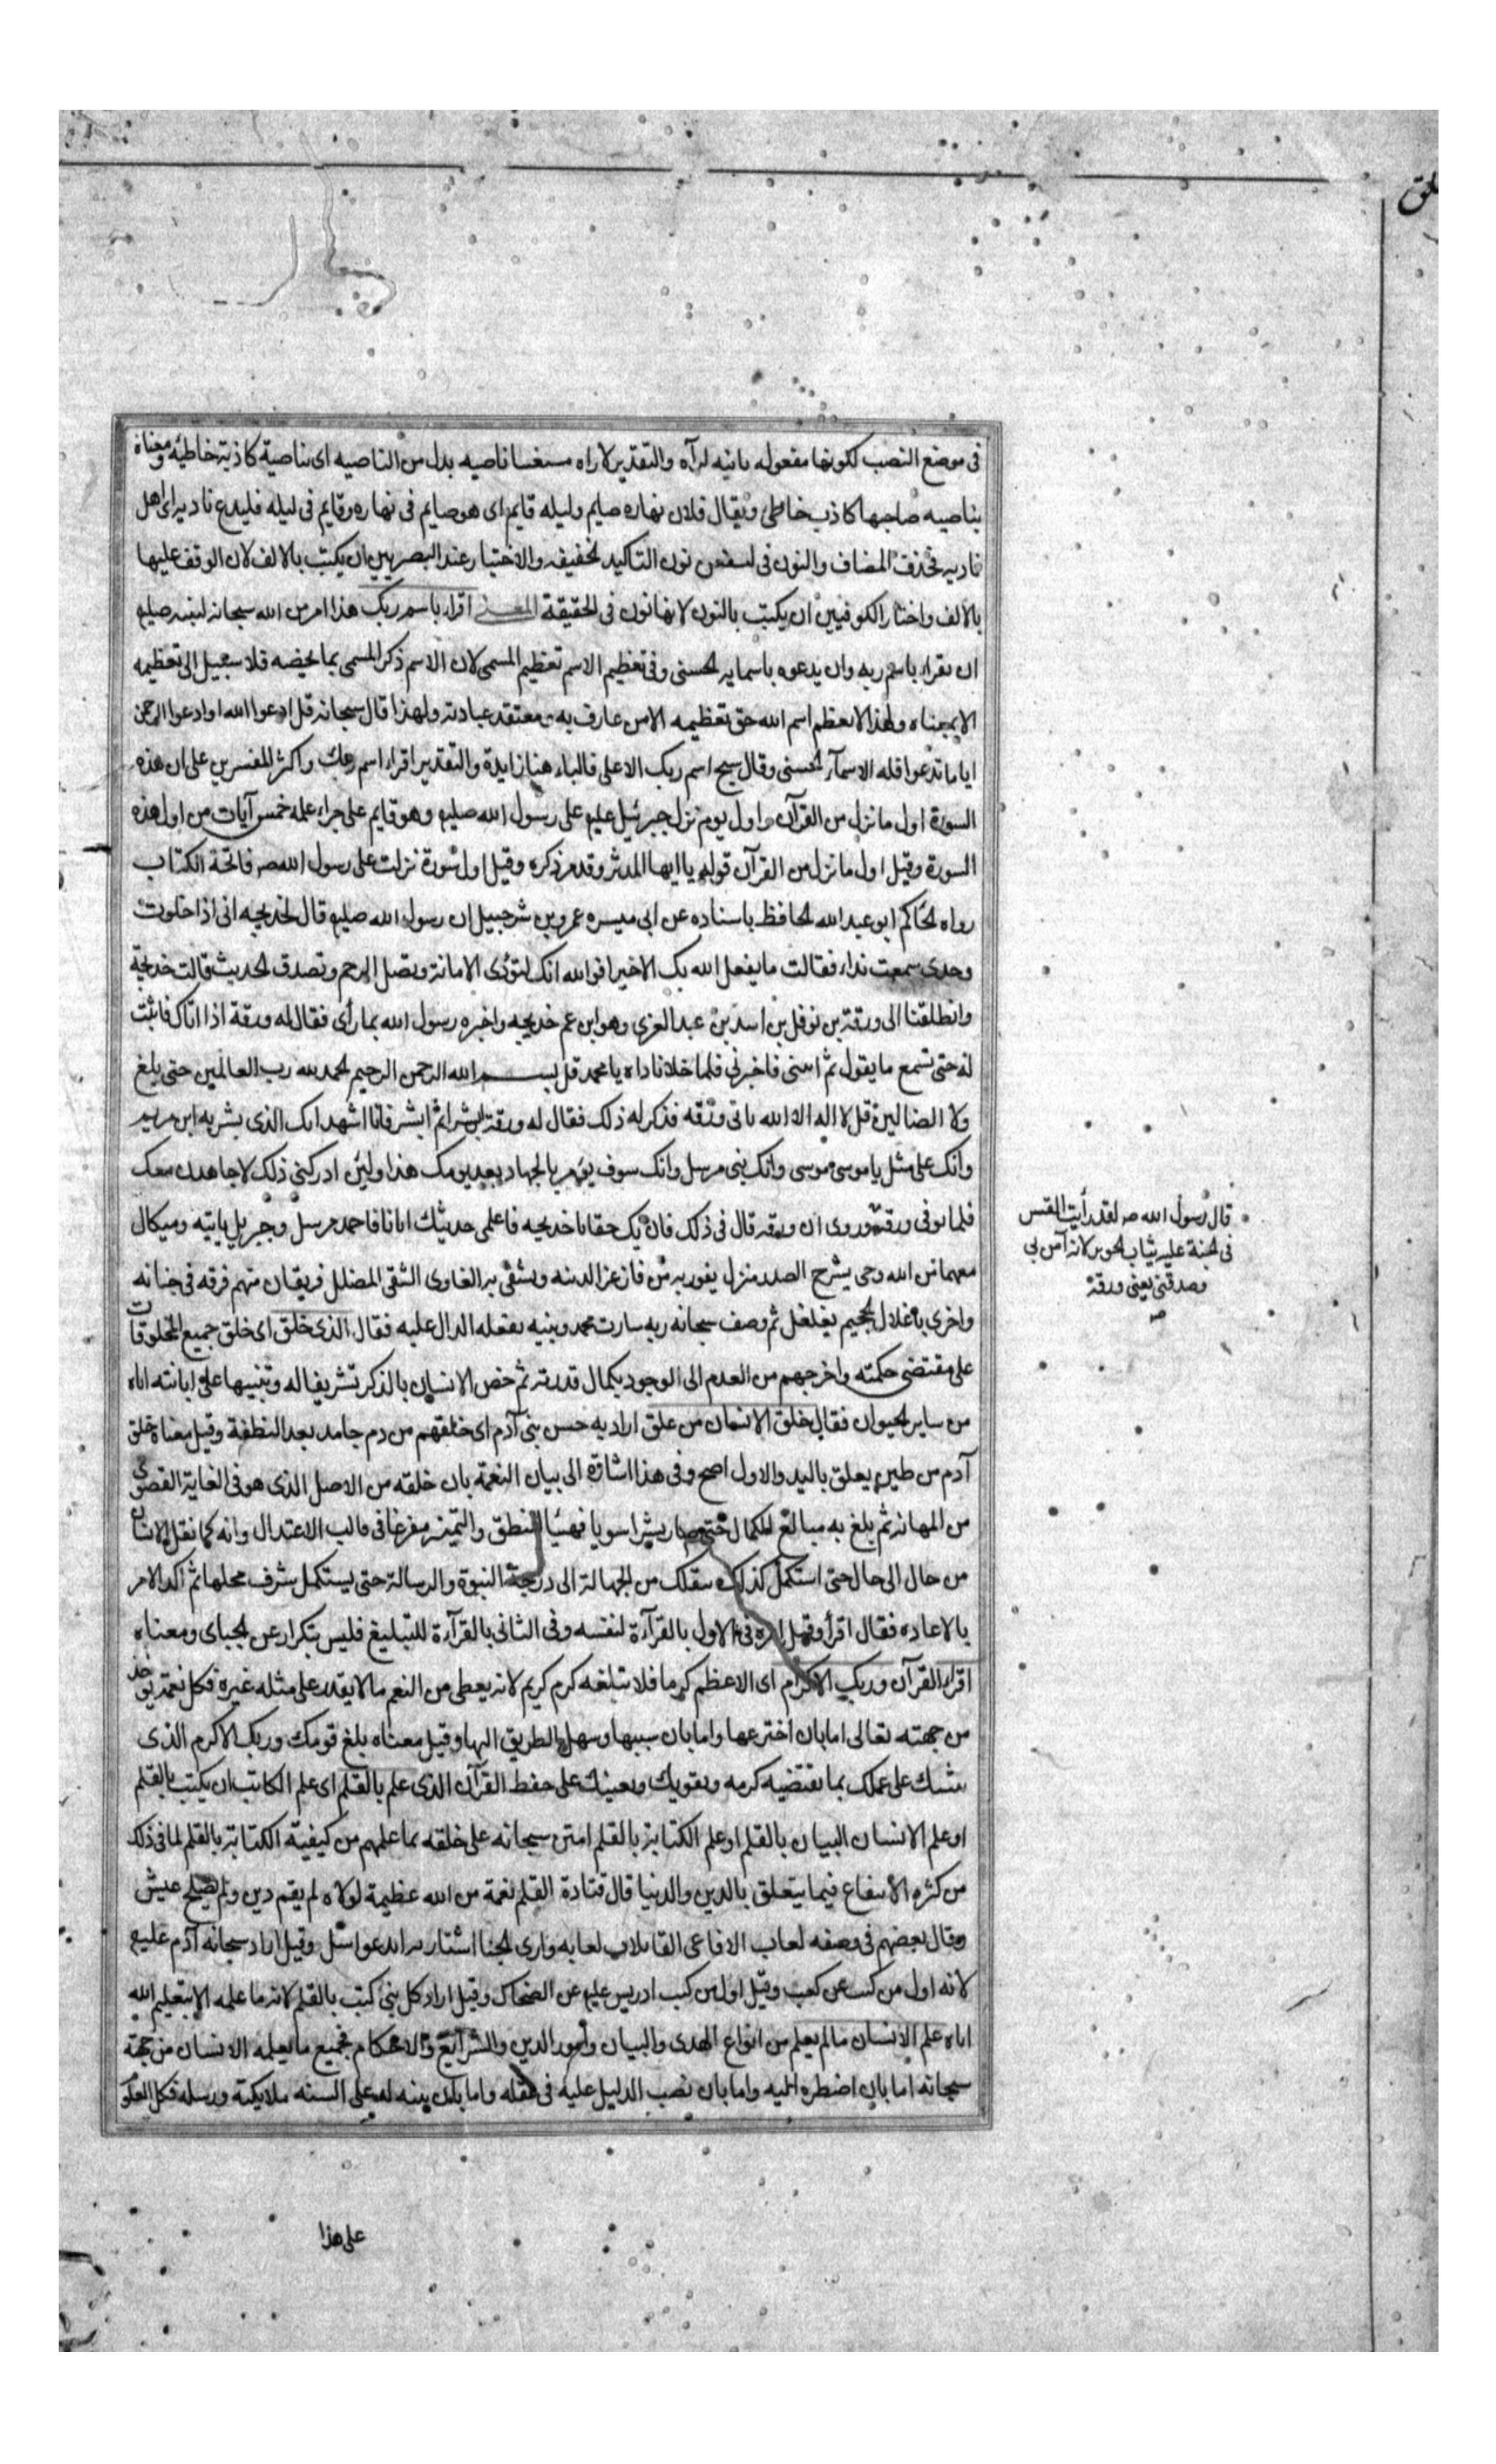 لق
فى موضع النصب لكونها مفعوله ثانيه لرآه والتقدير لاراه مستغنيا ناصيه بدل من الناصيه اى بناصية كاذبة خاطئه ومعناه
بناصيه صاحبها كاذب خاطئ ويقال فلان نهاره صايم وليله قايم اى هو صايم فى نهاره وقايم فى ليله فليدع ناديه اى اهل
ناديه فحذف المضاف والنون فى لنسفعن نون التاكيد الخفيفه والاختيار عند البصريين ان يكتب بالالف لان الوقف عليها
بالالف واختار الكوفيين ان يكتب بالنون لانها نون فى الحقيقة المعنى اقراء باسم ربك هذا امر من الله سبحانه لنبيه صلع
ان يقراء باسم ربه وان يدعوه باسمايه الحسنى وفى تعظيم الاسم تعظيم المسمى لان الاسم ذكر المسمى بما يخصه فلا سبيل الى تعظيمه
الا بمعناه ولهذا لا يعظم اسم الله حق تعظيمه الا من عارف به ومعتقد عبادته ولهذا قال سبحانه قل ادعوا الله او ادعوا الرحمن
ايا ما تدعوا فله الاسمآء الحسنى وقال سبح اسم ربك الاعلى فالباء هنا زايدة والتقدير اقراء اسم ربك واكثر المفسرين على ان هذه
السورة اول ما نزل من القرآن واول يوم نزل جبرئيل عليه على رسول الله صلعم وهو قايم على حراء علمه خمس آيات من اول هذه
السورة وقيل اول ما نزل من القرآن قوله يا ايها المدثر وقد مر ذكره وقيل اول سورة نزلت على رسول الله ص فاتحة الكتاب
رواه الحاكم ابو عبد الله الحافظ باسناده عن ابى ميسره عمرو بن شرحبيل ان رسول الله صلعم قال لخديجه انى اذا خلوت
وحدى سمعت نداء فقالت ما يفعل الله بك الا خيرا فوالله انك لتؤدى الامانة وتصل الرحم وتصدق الحديث قالت خديجة
وانطلقنا الى ورقة بن نوفل بن اسد بن عبد العزى وهو ابن عم خديجه واخبره رسول الله بما رأى فقال له ورقة اذا اتاك فاثبت
له حتى تسمع ما يقول ثم ائتنى فاخبرنى فلما خلا ناداه يا محمد قل بسم الله الرحمن الرحيم الحمد لله رب العالمين حتى بلغ
ولا الضالين قل لا اله الا الله فاتى ورقه فذكر له ذلك فقال له ورقة ابشر ثم ابشر فانا اشهد انك الذى بشر به ابن مريم
وانك على مثل ناموسى موسى وانك نبى مرسل وانك سوف يؤمر بالجهاد بعد يومك هذا ولئن ادركنى ذلك لاجاهدن معك
فلما توفى ورقة وروى ان ورقه قال فى ذلك فان يك حقا يا خديجه فاعلمى حديثك ايانا فاحمد مرسل وجبريل ياتيه وميكال
معهما من الله وحى يشرح الصدر منزل يفوز به من فاز عز لدينه ويشقى به الغاوى الشقى المضلل فريقان منهم فرقه فى جنانه
واخرى باغلال الجحيم يغلغل ثم وصف سبحانه ربه بفعله الدال عليه فقال الذى خلق اى خلق جميع المخلوقات
على مقتضى حكمته واخرجهم من العدم الى الوجود بكمال قدرته ثم خص الانسان بالذكر تشريفا له وتنبيها على ابانته اياه
من ساير الحيوان فقال خلق الانسان من علق اراد به جنس بنى آدم اى خلقهم من دم جامد بعد النطفة وقيل معناه خلق
آدم من طين يعلق باليد والاول اصح وفى هذا اشارة الى بيان النعمة بان خلقه من الاصل الذى هو فى الغاية القصوى
من المهانه ثم بلغ به مبالغ الكمال حتى صار بشرا سويا مهيئا للنطق والتميز مفرغا فى قالب الاعتدال وانه كما نقل الانسان
من حال الى حال حتى استكمل كذلك ينقلك من الجهالة الى درجة النبوة والرسالة حتى يستكمل شرف محلها ثم اكد الامر
بالاعاده فقال اقرأ وقيل امره فى الاول بالقرآءة لنفسه وفى الثانى بالقرآءة للتبليغ فليس بتكرار عن الجباى ومعناه
اقراء القرآن وربك الاكرم اى الاعظم كرما فلا تبلغه كرم كريم لانه يعطى من النعم ما لا يقدر على مثله غيره فكل نعمة يوجد
من جهته تعالى اما بان اخترعها واما بان سببها وسهل الطريق اليها وقيل معناه بلغ قومك وربك الاكرم الذى
يثيبك على عملك بما يقتضيه كرمه ويقويك ويعينك على حفظ القرآن الذى علم بالقلم اى علم الكاتب ان يكتب بالقلم
او علم الانسان البيان بالقلم او علم الكتابة بالقلم امتن سبحانه على خلقه بما علمهم من كيفية الكتابة بالقلم لما فى ذلك
من كثره الانتفاع فيما يتعلق بالدين والدنيا قال قتادة القلم نعمة من الله عظيمة لولاه لم يقم دين ولم يصلح عيش
وقال بعضهم فى وصفه لعاب الافاعى القاتلات لعابه وارى الجنا اشتارته ايد عواسل وقيل اراد سبحانه آدم عليه
لانه اول من كتب عن كعب وقيل اول من كتب ادريس عليه عن الضحاك وقيل اراد كل نبى كتب بالقلم لانه ما علمه الا بتعليم الله
اياه علم الانسان ما لم يعلم من انواع الهدى والبيان وامور الدين والشرايع والاحكام فجميع ما يعلمه الانسان من جهته
سبحانه اما بان اضطره اليه واما بان نصب الدليل عليه فى عقله واما بان بينه له على السنه ملايكته ورسله فكل العلوم
قال رسول الله ص لقد رأيت القس
فى الجنة عليه ثياب الحرير لانه آمن بى
وصدقنى يعنى ورقة
على هذا